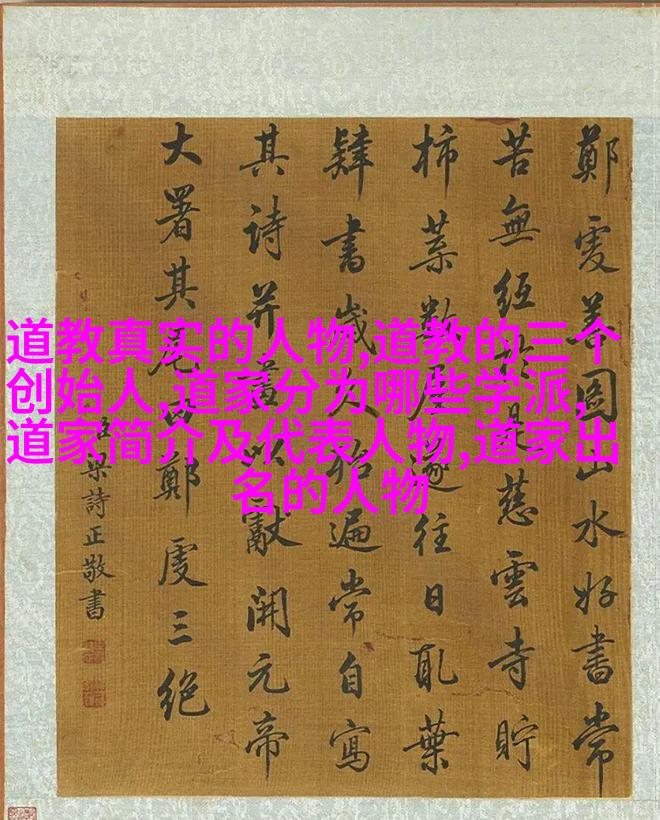 道教真实的人物,道教的三个
创始人,道家分为哪些学派,
道家简介及代表人物,道家出
名的人物
鄭虔善圖山水好書常
苦無紙於是慈雲寺貯
柿葉數屋遂往日取葉
肄書歲久殆遍常自寫
其詩并畫以獻開元帝
大署其尾曰鄭虔三絕
臣梁詩正敬書